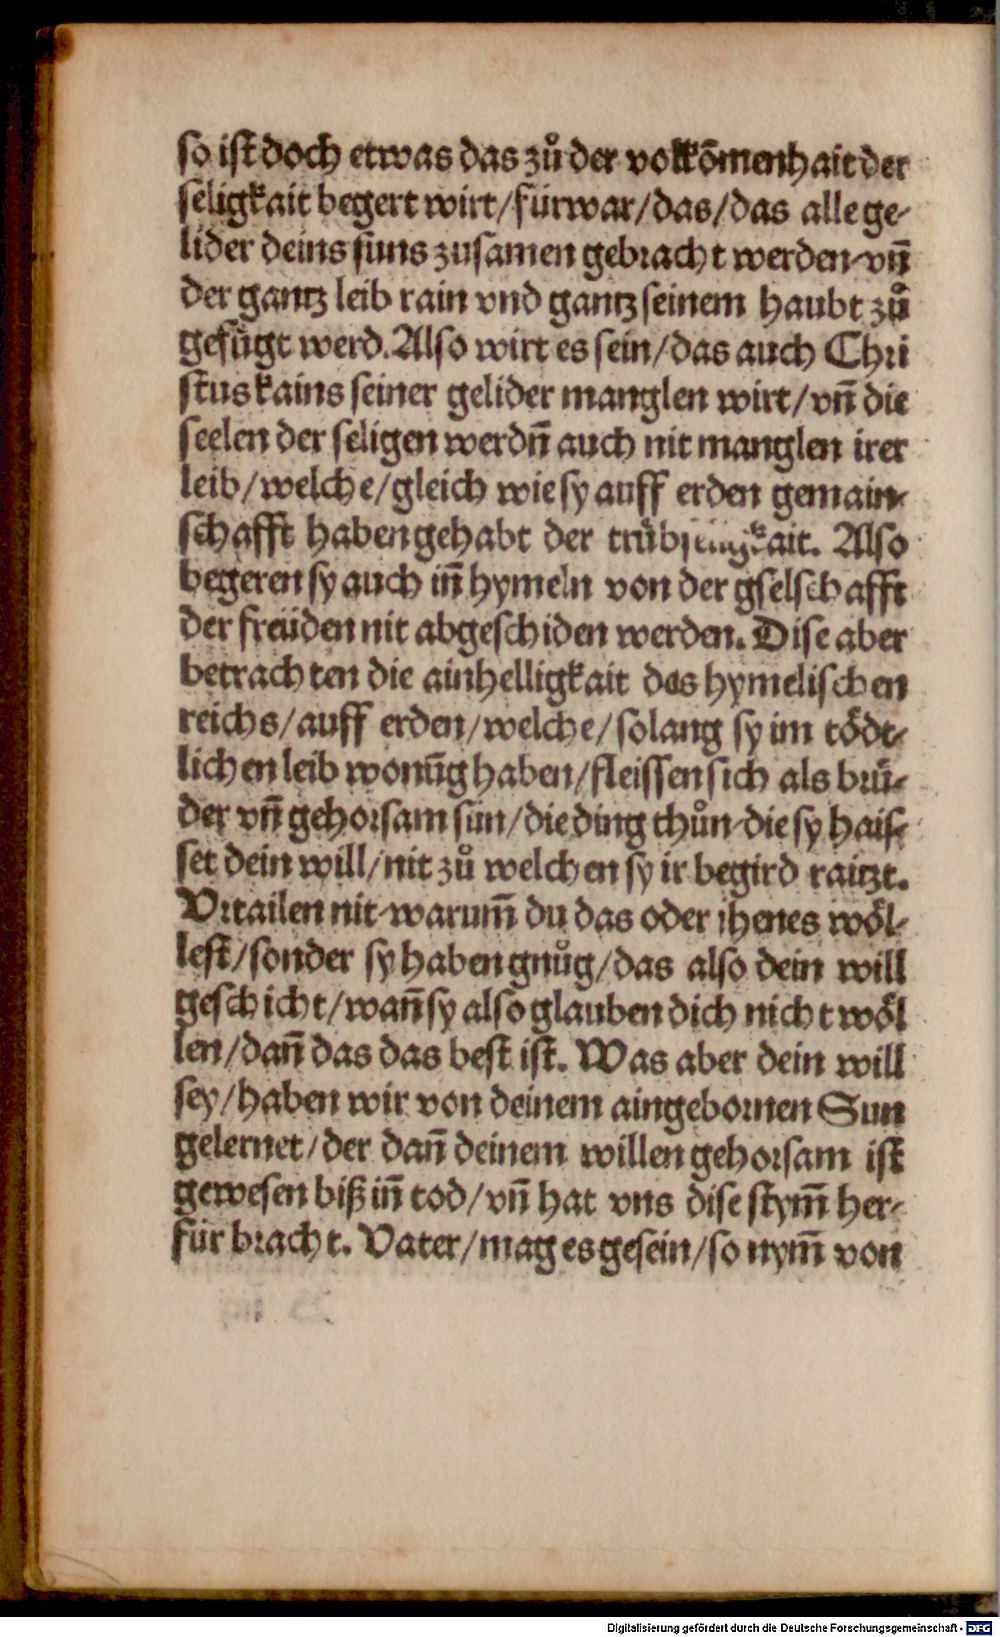 so ist doch etwas das zů der volkõmenhait der
seligkait begert wirt/fürwar/das/das alle ge-
lider deins suns zusamen gebracht werden vñ
der gantz leib rain vnd gantz seinem haubt zů
gefügt werd. Also wirt es sein/das auch Chri
stus kains seiner gelider manglen wirt/vñ die
seelen der seligen werdñ auch nit manglen irer
leib/welche/gleich wie sy auff erden gemain-
schafft haben gehabt der Also
begeren sy auch iñ hymeln von der gselschafft
der freüden nit abgeschiden werden. Dise aber
betrachten die ainhelligkait des hymelischen
reichs/auff erden/welche/solang sy im tödt-
lichen leib wonũg haben/fleissen sich als brü-
der vñ gehorsam sün/die ding thůn die sy hais-
set dein will/nit zů welchen sy ir begird raitzt.
Vrtailen nit warum̃ du das oder jhenes wöl-
lest/sonder sy haben gnůg/das also dein will
geschicht/wañ sy also glauben dich nicht wöl
len/dañ das das best ist. Was aber dein will
sey/haben wir von deinem aingebornen Sun
gelernet/der dañ deinem willen gehorsam ist
gewesen biß iñ tod/vñ hat vns dise stym̃ her-
für bracht. Vater/mag es gesein/so nym̃ von
Digitalisierung gefördert durch die Deutsche Forschungsgemeinschaft - DFG